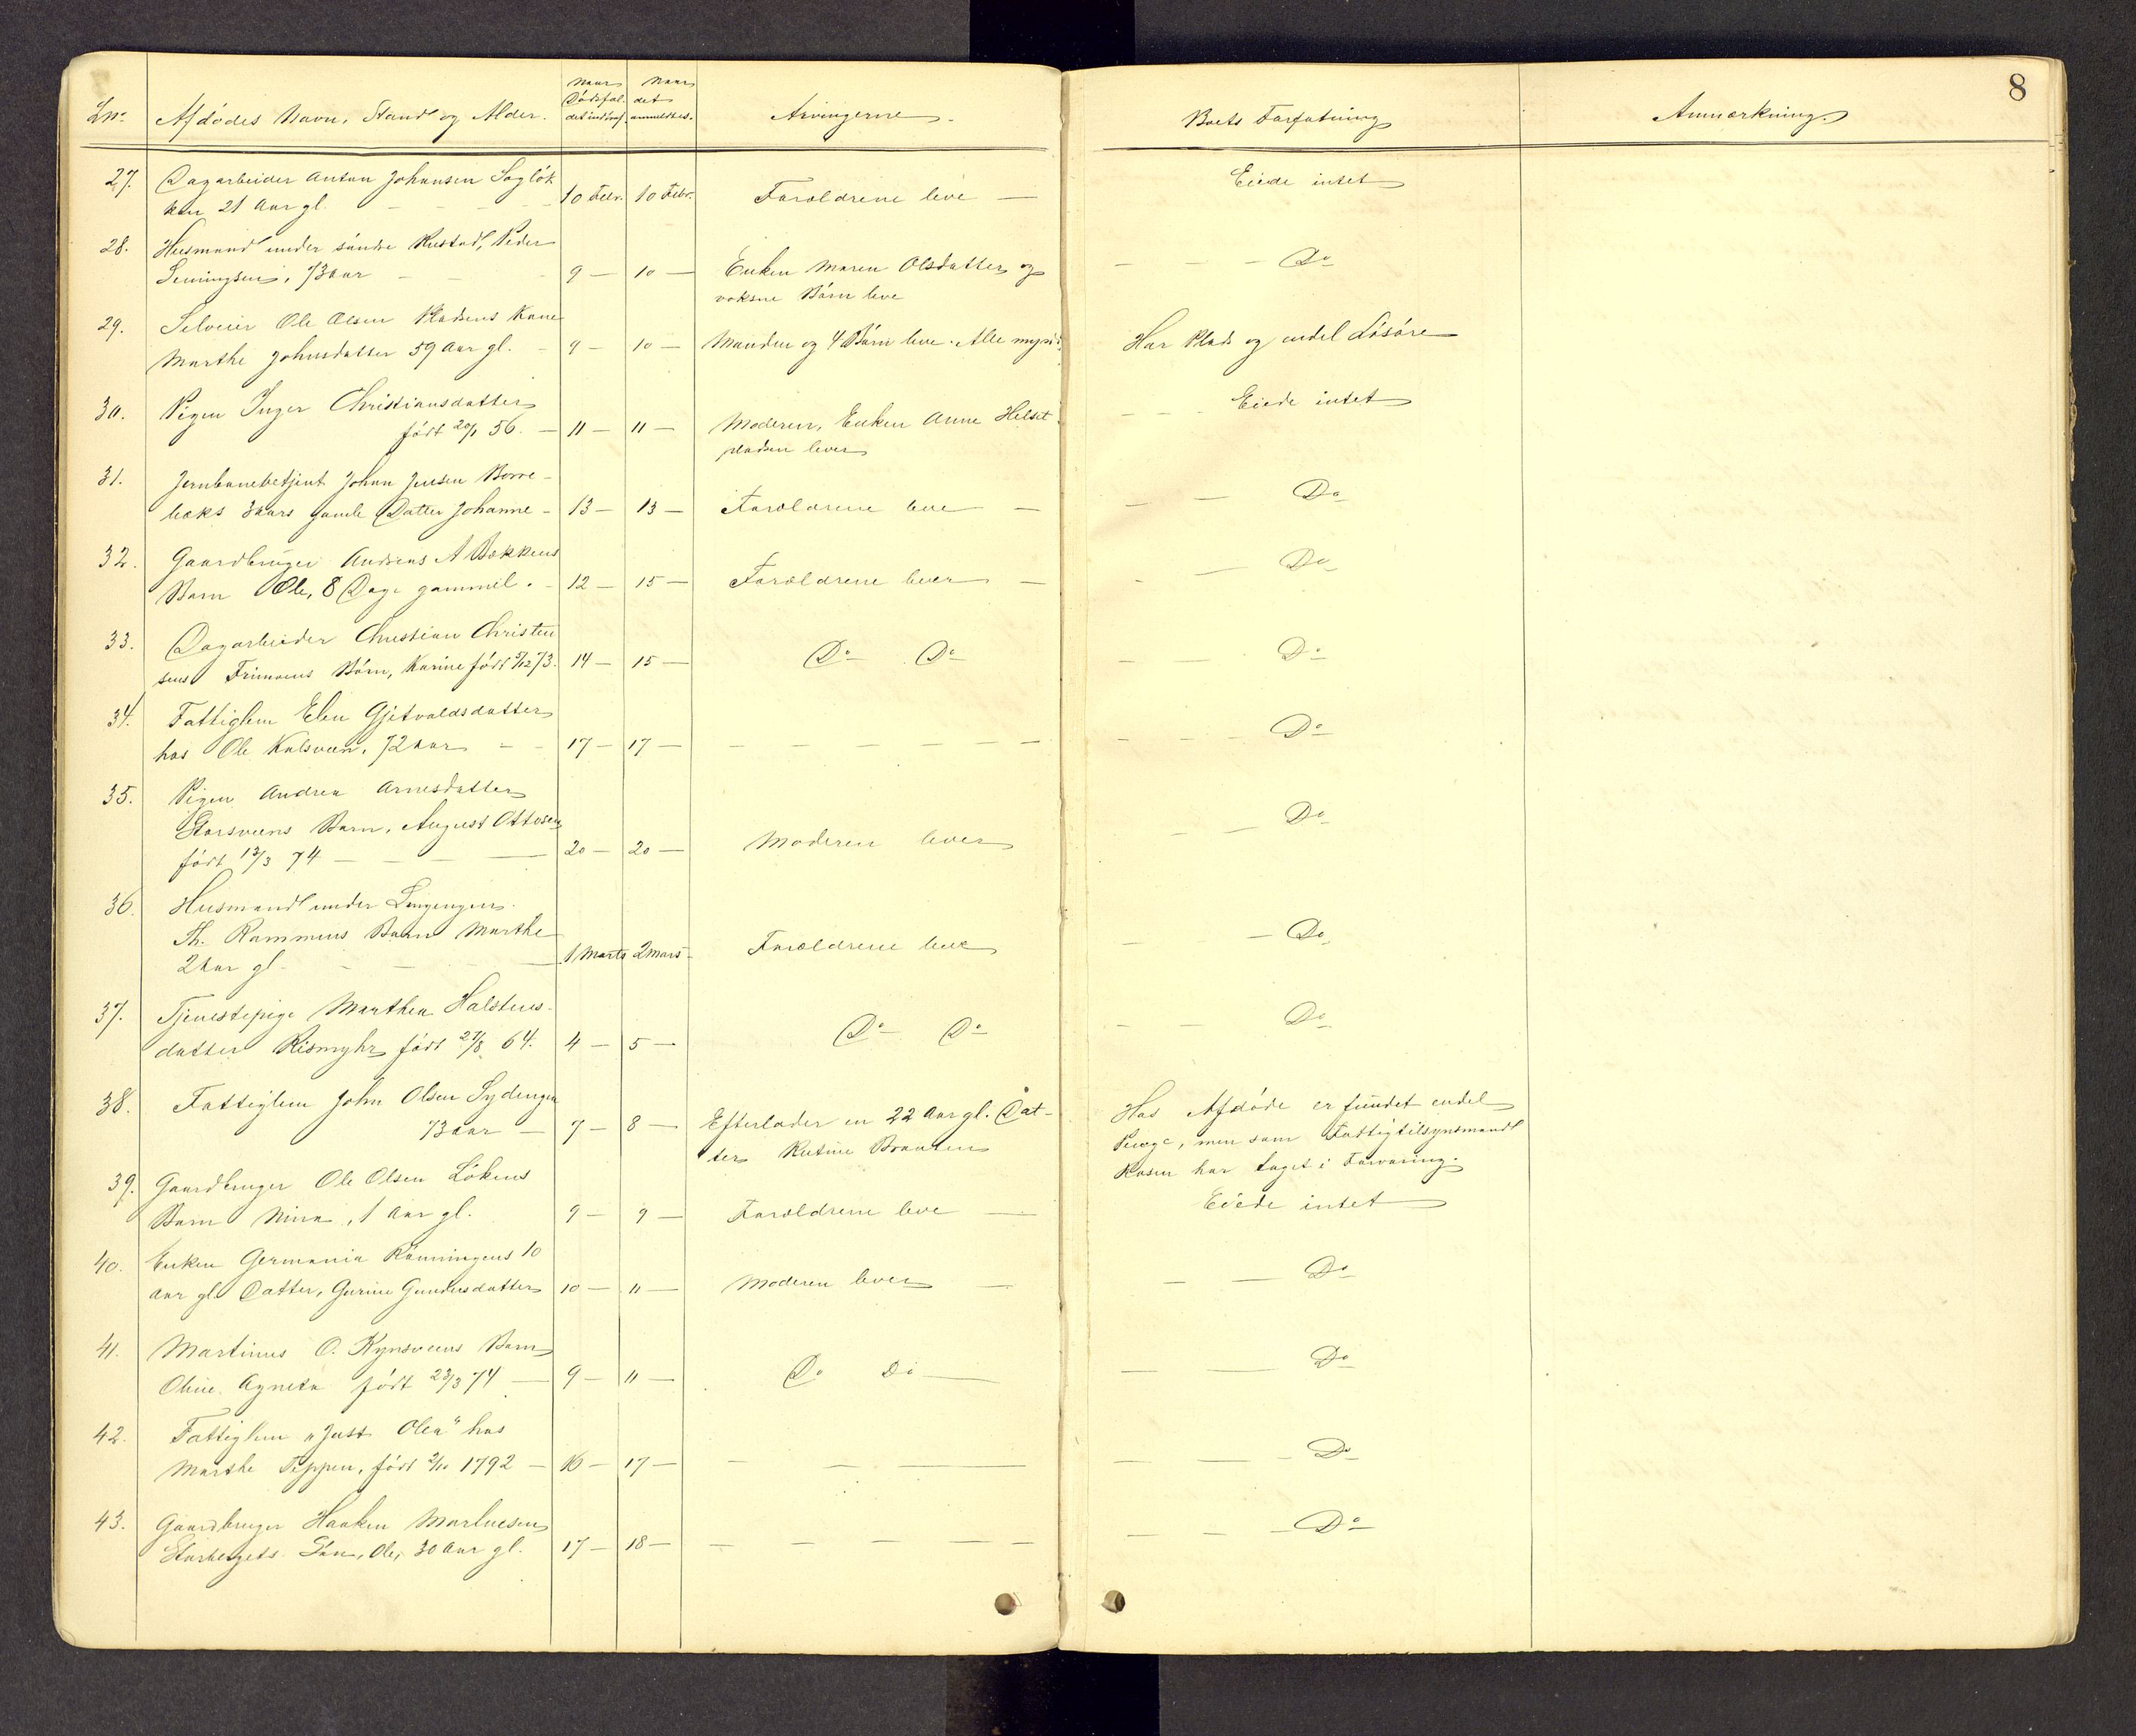 8
Lno Afdödes Navn, Stand og Alder. Naar Dödsfal- det indtraf. Naar det anmeldtes. Arvingerne. Boets Forfatning Anmærkning.
27. Dagarbeider Anton Johansen Saglök
ken 21 Aar gl. 10 Febr. 10 Febr. Forældrene leve — Eiede intet
28. Husmand under söndre Rustad, Peder
73 Aar 9 — 10 — Enken Maren Olsdatter og — — — Do
voksne Börn leve
29. Selveier Ole Olsen Pladsens Kone
Marthe Johnsdatter 59 Aar gl. — 9 — 10 — Manden og 4 Börn leve. Alle Har Plads og endel Lösöre
30. Pigen Inger Christiansdatter — — Eiede intet
født 20/1 56. — 11 — 11 — Moderen, Enken Anne Helset
pladsen lever
31. Jernbanebetjent Johan Jensen Borre-
bæks 3 Aars gamle Datter Johanne — 13 — 13 — Forældrene leve — — — Do
32. Gaardbruger Andreas A Bækkens
Barn Ole, 8 Dage gammel. — 12 — 15 — Forældrene lever — — — Do
33. Dagarbeider Christian Christen
sens Barn, Karine født 5/12 73. 14 — 15 — Do Do — Do
34. Fattiglem Elen Gjetvoldsdatter
hos Ole Kalsveen, 72 Aar — — 17 — 17 — — — — — — — — Do
35. Pigen Andrea Arnesdatter
Storsveens Barn, August Ottosen — — Do
født 13/3 74 — — — — 20 — 20 — Moderen lever
36. Husmand under
Th. Rammens Barn Marthe
2 Aar gl. — — — 1 Marts 2 Mars Forældrene leve — — Do
37. Tjenestepige Marthea Halstens-
datter Rismyhr født 27/8 64. 4 — 5 — Do Do — — Do
38. Fattiglem John Olsen Sydengen
73 Aar — 7 — 8 — Efterlader en 22 Aar gl. Dat-
ter Braaten
Hos Afdöde er fundet endel
Penge, men som Fattigtilsynsmand
Rosen har taget i Forvaring.
39. Gaardbruger Ole Olsen Lökens
Barn Nina, 1 Aar gl. 9 — 9 — Forældrene leve — Eiede intet
40. Enken Germania Rönningens 10
Aar gl. Datter, Gurine Gundersdatter 10 — 11 — Moderen lever — — — Do
41. Martinus O. Rynsveens Barn
Oline Agneta født 23/3 74 — 9 — 11 — Do Do — — — Do
42. Fattiglem „Just Olea" hos
Marthe Teppen, født 2/10 1792 — 16 — 17 — — — — — — Do
43. Gaardbruger Haaken
Storbergets Sön, Ole, 30 Aar gl. 17 — 18 — — — — — — — — — Do